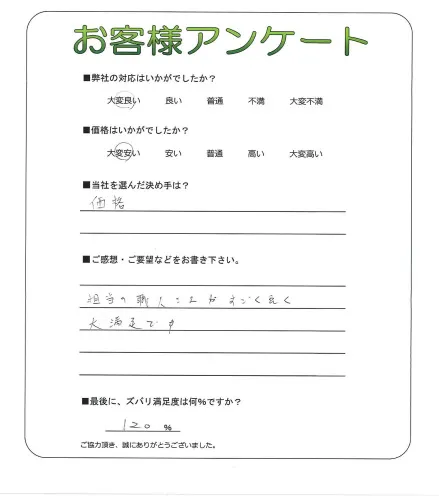 お客様アンケート
■弊社の対応はいかがでしたか？
大変良い 良い 普通 不満 大変不満
■価格はいかがでしたか？
大変安い 安い 普通 高い 大変高い
■当社を選んだ決め手は？
価格
■ご感想・ご要望などをお書き下さい。
担当の職人さんがすごく良く
大満足です
■最後に、ズバリ満足度は何％ですか？
120 %
ご協力頂き、誠にありがとうございました。